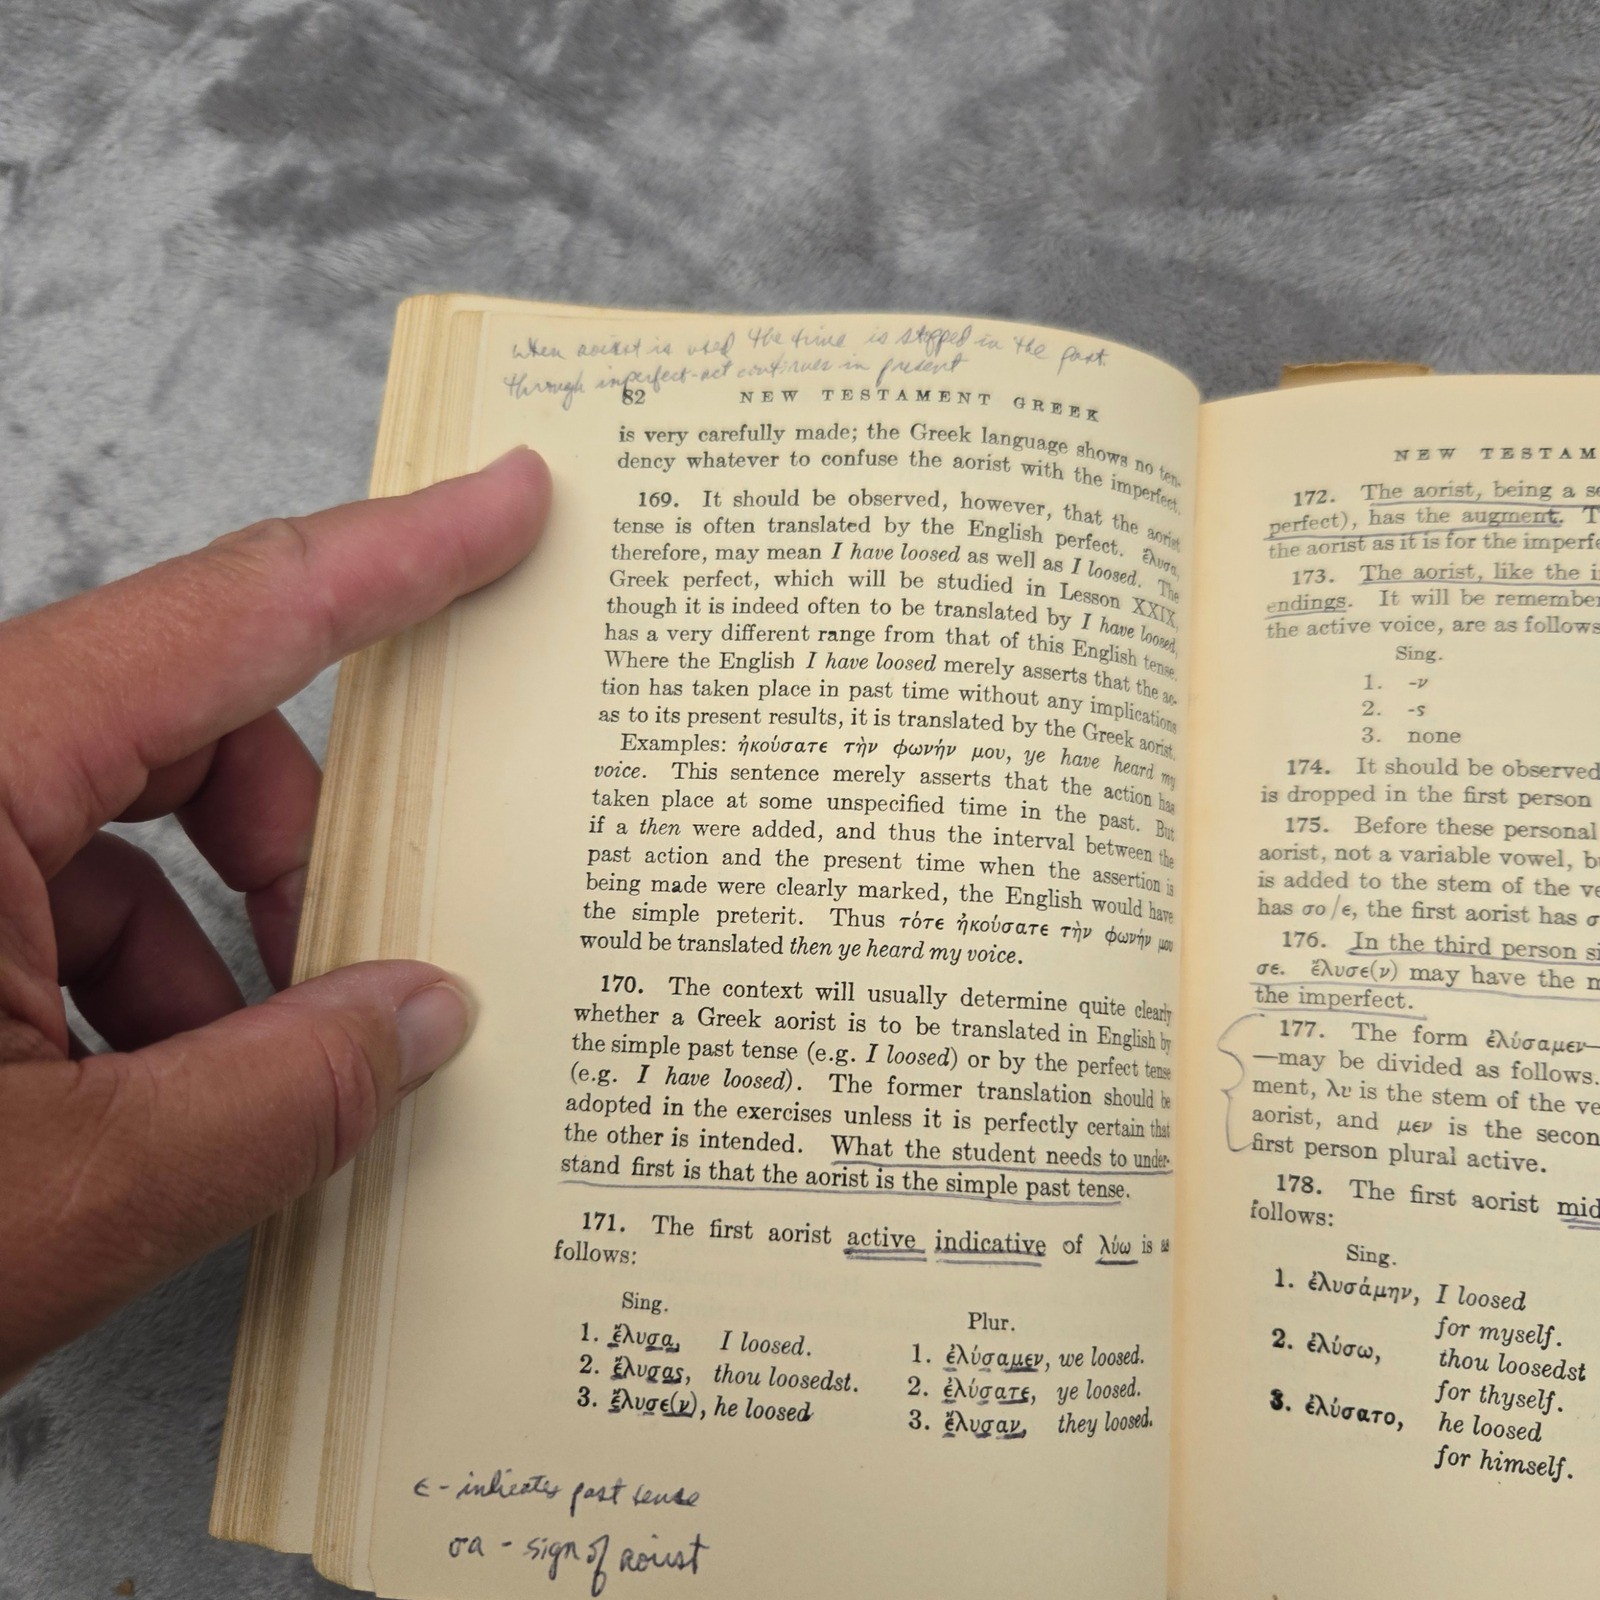 when aorist is used the time is stopped in the past.
through imperfect-act continues in present
82 NEW TESTAMENT GREEK
is very carefully made; the Greek language shows no ten-
dency whatever to confuse the aorist with the imperfect.
169. It should be observed, however, that the aorist
tense is often translated by the English perfect. ἔλυσα,
therefore, may mean I have loosed as well as I loosed. The
Greek perfect, which will be studied in Lesson XXIX,
though it is indeed often to be translated by I have loosed,
has a very different range from that of this English tense.
Where the English I have loosed merely asserts that the ac-
tion has taken place in past time without any implications
as to its present results, it is translated by the Greek aorist.
Examples: ἠκούσατε τὴν φωνήν μου, ye have heard my
voice. This sentence merely asserts that the action has
taken place at some unspecified time in the past. But
if a then were added, and thus the interval between the
past action and the present time when the assertion is
being made were clearly marked, the English would have
the simple preterit. Thus τότε ἠκούσατε τὴν φωνήν μου
would be translated then ye heard my voice.
170. The context will usually determine quite clearly
whether a Greek aorist is to be translated in English by
the simple past tense (e.g. I loosed) or by the perfect tense
(e.g. I have loosed). The former translation should be
adopted in the exercises unless it is perfectly certain that
the other is intended. What the student needs to under-
stand first is that the aorist is the simple past tense.
171. The first aorist active indicative of λύω is as
follows:
Sing. Plur.
1. ἔλυσα, I loosed. 1. ἐλύσαμεν, we loosed.
2. ἔλυσας, thou loosedst. 2. ἐλύσατε, ye loosed.
3. ἔλυσε(ν), he loosed 3. ἔλυσαν, they loosed.
ε - indicates past tense
σα - sign of aorist
NEW TESTAM
172. The aorist, being a se
perfect), has the augment. T
the aorist as it is for the imperfe
173. The aorist, like the i
endings. It will be remember
the active voice, are as follows
Sing.
1. -ν
2. -ς
3. none
174. It should be observed
is dropped in the first person
175. Before these personal
aorist, not a variable vowel, bu
is added to the stem of the ve
has σο/ε, the first aorist has σ
176. In the third person si
σε. ἔλυσε(ν) may have the m
the imperfect.
177. The form ἐλύσαμεν—
—may be divided as follows.
ment, λυ is the stem of the ve
aorist, and μεν is the secon
first person plural active.
178. The first aorist mid
follows:
Sing.
1. ἐλυσάμην, I loosed
for myself.
2. ἐλύσω, thou loosedst
for thyself.
3. ἐλύσατο, he loosed
for himself.